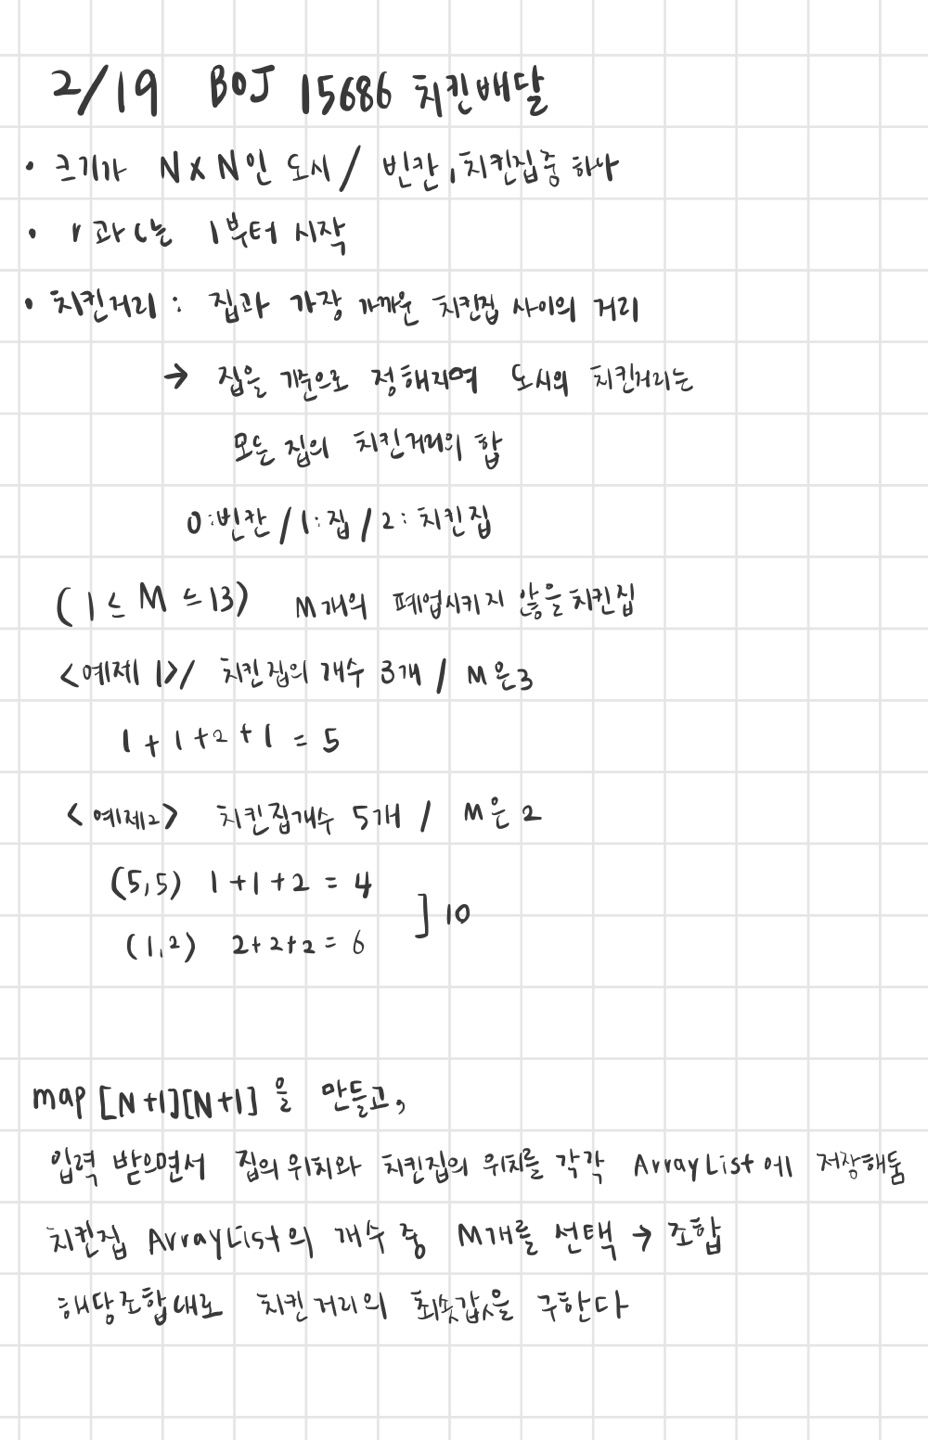 2/19 BOJ 15686 치킨배달
• 크기가 N x N인 도시 / 빈칸, 치킨집중 하나
• r과 c는 1부터 시작
• 치킨거리 : 집과 가장 가까운 치킨집 사이의 거리
→ 집을 기준으로 정해지며 도시의 치킨거리는
모든 집의 치킨거리의 합
0:빈칸 / 1:집 / 2:치킨집
(1 ≤ M ≤ 13) M개의 폐업시키지 않을 치킨집
<예제 1> / 치킨집의 개수 3개 / M은3
1 + 1 + 2 + 1 = 5
<예제2> 치킨집개수 5개 / M은 2
(5,5) 1+1+2 = 4
] 10
(1,2) 2+2+2 = 6
map [N+1][N+1] 을 만들고,
입력 받으면서 집의 위치와 치킨집의 위치를 각각 ArrayList에 저장해둠
치킨집 ArrayList의 개수 중 M개를 선택 → 조합
해당조합대로 치킨거리의 최솟값을 구한다